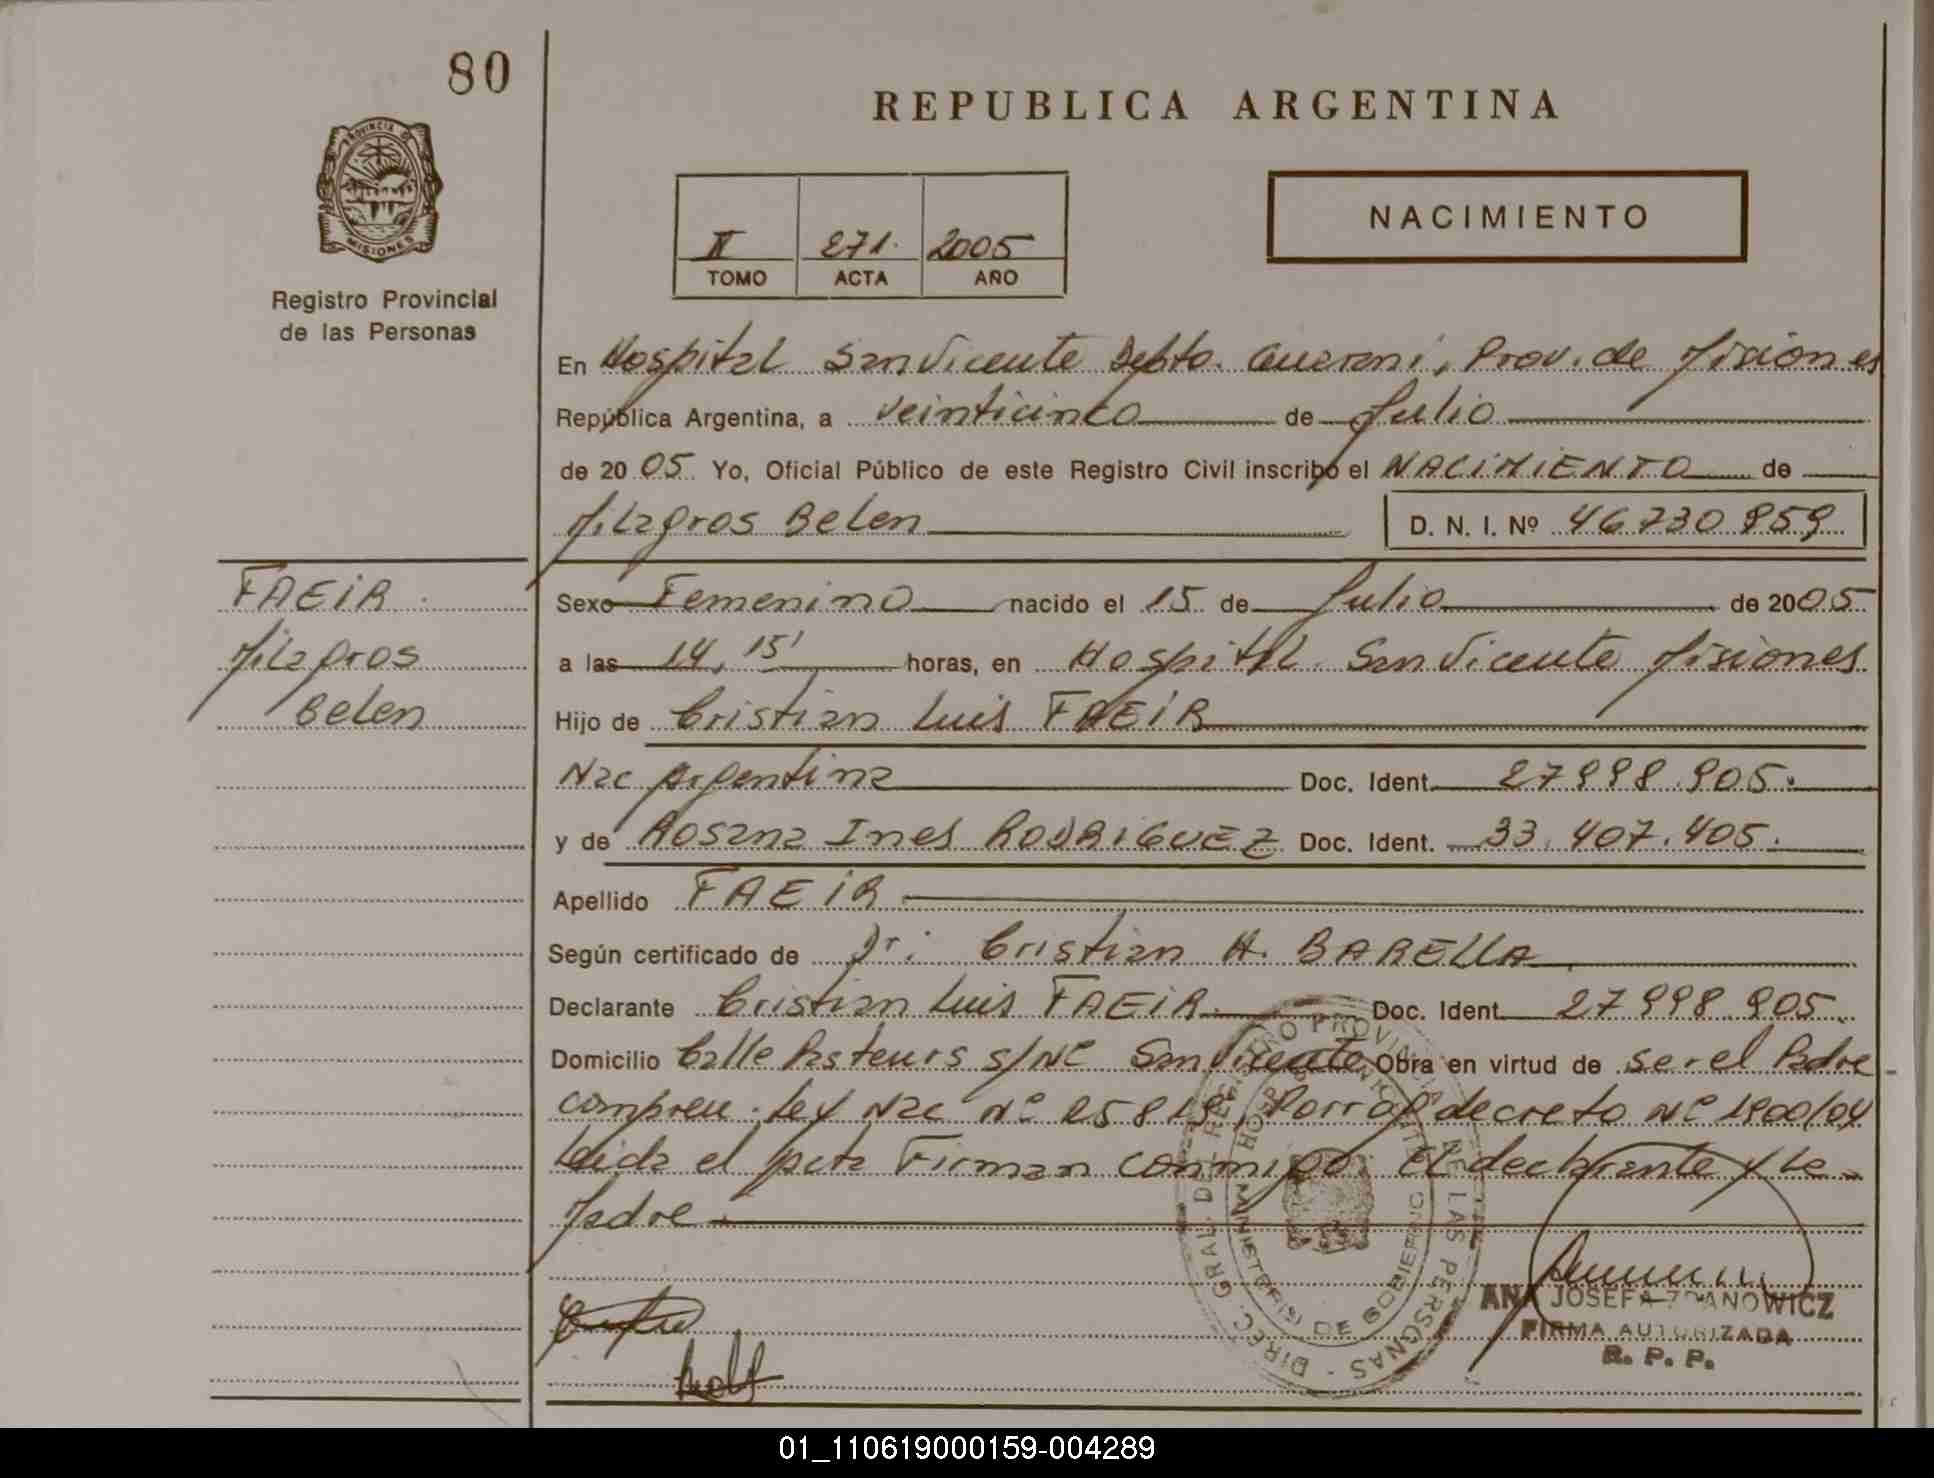 80
REPUBLICA ARGENTINA
PROVINCIA DE MISIONES
Registro Provincial
de las Personas
II 271. 2005
TOMO ACTA AÑO
NACIMIENTO
En Hospital San Vicente Depto. Guarani, Prov. de Misiones
República Argentina, a veinticinco de Julio
de 2005 Yo, Oficial Público de este Registro Civil inscribo el NACIMIENTO de
Milagros Belen D. N. I. Nº 46.730.959
FAEIR
Milagros
Belen
Sexo Femenino nacido el 15 de Julio de 2005
a las 14,15' horas, en Hospital San Vicente Misiones
Hijo de Cristian Luis FAEIR
Nac Argentina Doc. Ident. 27998.905.
y de Rosana Ines RODRIGUEZ Doc. Ident. 33.407.405.
Apellido FAEIR
Según certificado de Dr: Cristian H. BARELLA
Declarante Cristian Luis FAEIR Doc. Ident. 27998.905.
Domicilio Calle Pasteurs s/Nº San Vicente Obra en virtud de ser el Padre
Ley Nac Nº 25819, decreto Nº 1900/04
Leida el acta Firman conmigo El declarante y La
Madre
DIREC. GRAL. DEL REGISTRO PROVINCIAL DE LAS PERSONAS
MINISTERIO DE GOBIERNO
ANA JOSEFA ZDANOWICZ
FIRMA AUTORIZADA
R. P. P.
01_110619000159-004289